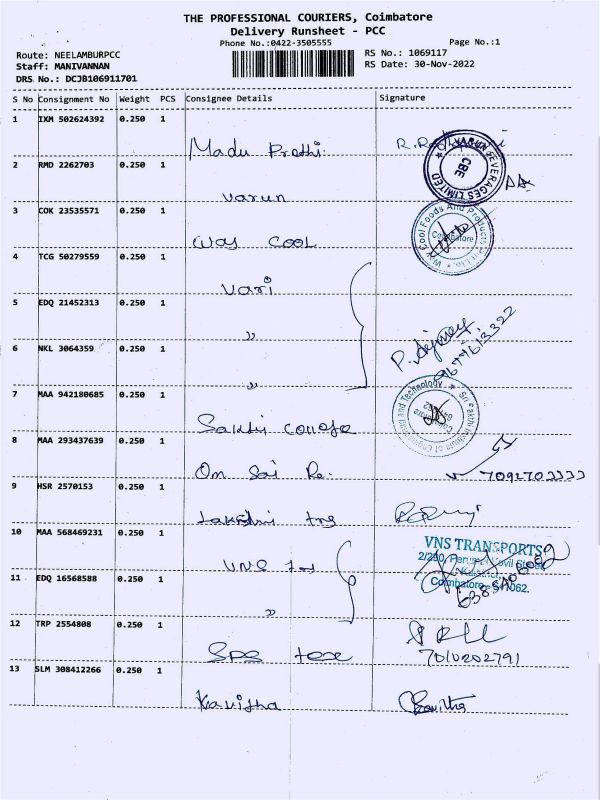 THE PROFESSIONAL COURIERS, Coimbatore
Delivery Runsheet - PCC
Phone No.:0422-3505555
Page No.:1
Route: NEELAMBURPCC
RS No.: 1069117
Staff: MANIVANNAN
RS Date: 30-Nov-2022
DRS No.: DCJB106911701
S No Consignment No Weight PCS Consignee Details Signature
1 IXM 502624392 0.250 1
Madu Prathi
2 RMD 2262703 0.250 1
VARUN BEVERAGES LIMITED
CBE
Varun
3 COK 23535571 0.250 1
Way Cool Foods And Products Pvt Ltd.
Coimbatore
Way COOL
4 TCG 50279559 0.250 1
Vari
5 EDQ 21452313 0.250 1
"
6 NKL 3064359 0.250 1
"
P.
7 MAA 942180685 0.250 1
Sri Sakthi Institute of Engineering and Technology
Coimbatore
Sakthi College
8 MAA 293437639 0.250 1
Om Sai
7092703333
9 HSR 2570153 0.250 1
Lakshmi
10 MAA 568469231 0.250 1
VNS TRANSPORTS
Coimbatore - 641062.
11 EDQ 16568588 0.250 1
"
12 TRP 2554808 0.250 1
7010202791
13 SLM 308412266 0.250 1
Kavitha
Kavitha